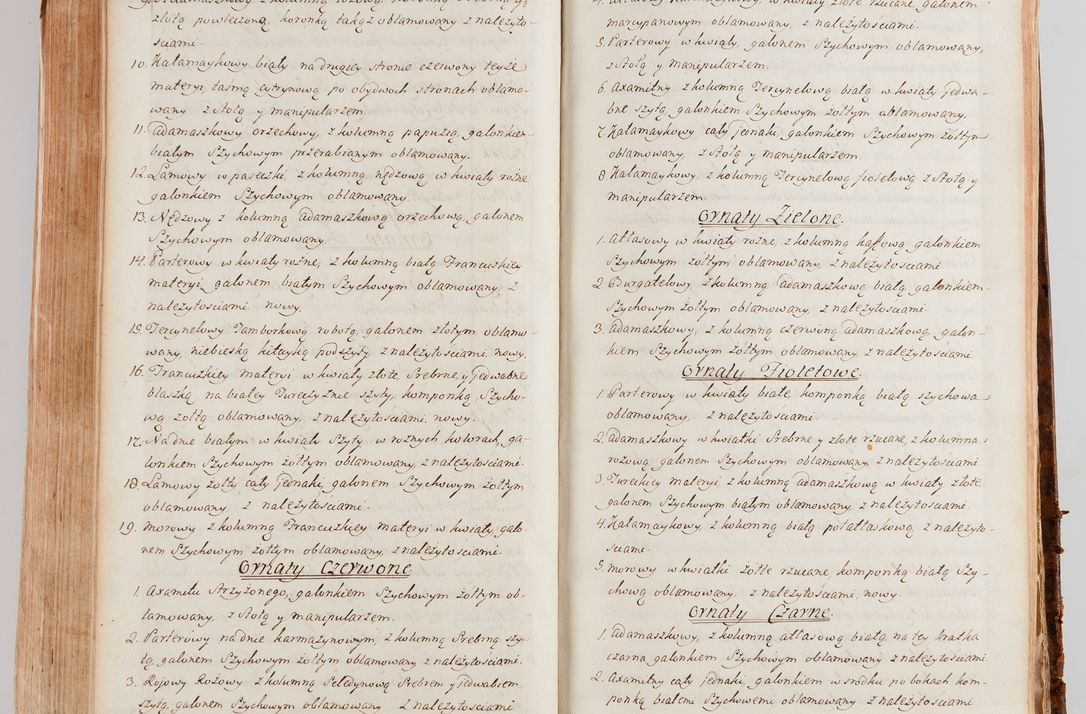 złotą powleczoną, koronką takąż oblamowany z należyto-
sciami.
10. Kałamaykowy biały na drugiey stronie czerwony teyże
materyi, tasmą cytrynową po obydwoch stronach oblamo-
wany z Stołą y manipularzem.
11. Adamaszkowy orzechowy, z kolumną papuzią, galonkiem
białym Szychowym przerabianym oblamowany.
12. Lamowy w paseczki z kolumną nędzową w kwiaty rożne
galonkiem Szychowym oblamowany.
13. Nędzowy z kolumną adamaszkową orzechową, galonem
Szychowym oblamowany.
14. Parterowy w kwiaty rożne, z kolumną białą Francuzkiey
materyi galonem białym Szychowym oblamowany, z
należytosciami nowy.
15. Tercynelowy Tamborkową robotą, galonem złotym oblamo-
wany, niebieską kitayką podszyty, z należytosciami, nowy.
16. Francuzkiey materyi w kwiaty złote, Srebrne, y jedwabne
blaszką na białey Turecżyznie szyty, komponką Szycho-
wą żołtą oblamowany, z należytosciami, nowy.
17. Na dnie białym w kwiaty Szyty w rożnych kolorach, ga-
lonkiem Szychowym żołtym oblamowany, z należytosciami.
18. Lamowy żołty cały jednaki, galonkiem Szychowym żołtym
oblamowany, z należytosciami.
19. Morowy z kolumną Francuzkiey materyi w kwiaty, galo-
nem Szychowym żołtym oblamowany, z należytosciami.
Ornaty Czerwone
1. Axamitu Strzyżonego, galonkiem Szychowym żołtym ob-
lamowany, z Stołą y manipularzem.
2. Parterowy na dnie karmazynowym, z kolumną Srebrną szy-
tą, galonem Szychowym żołtym oblamowany z należytosciami.
3. Rojowy Rożowy z kolumną Seledynową Srebrem y jedwabiem
szytą, galonem Szychowym oblamowany z należytosciami
marcypanowym oblamowany, z należytosciami.
5. Parterowy w kwiaty, galonem Szychowym oblamowany,
z Stołą y manipularzem.
6. Axamitny z kolumną Tercynelową białą w kwiaty jedwa-
bne szytą, galonkiem Szychowym żołtym oblamowany.
7. Kałamaykowy cały jednaki, galonkiem Szychowym żołtym
oblamowany, z Stołą y manipularzem.
8. Kałamaykowy, z kolumną Tercynelową fioletową z Stołą y
manipularzem
Ornaty Zielone.
1. Atłasowy w kwiaty rożne, z kolumną haftową, galonkiem
Szychowym żołtym oblamowany, z należytosciami
2. Burgatelowy z kolumną adamaszkową białą, galonkiem
Szychowym żołtym oblamowany, z należytosciami.
3. Adamaszkowy, z kolumną czerwiną adamaszkową, galon-
kiem Szychowym żołtym oblamowany, z należytosciami
Ornaty Fioletowe.
1. Parterowy w kwiaty białe komponką białą szychową
oblamowany, z należytosciami.
2. Adamaszkowy w kwiatki Srebrne y złote rzucane, z kolumną
rożową, galonem Szychowym oblamowany, z należytosciami.
3. Tureckiey materyi z kolumną adamaszkową w kwiaty złote
galonem Szychowym białym oblamowany, z należytosciami.
4. Kałamaykowy, z kolumną białą połatłaskową, z należyto-
sciami.
5. Morowy w kwiatki żołte rzucane, komponką białą Szy-
chową oblamowany, z należytosciami, nowy.
Ornaty Czarne.
1. Adamaszkowy, z kolumną atłasową białą, na tey kratka
czarna, galonkiem Szychowym oblamowany, z należytosciami
2. Axamitny cały jednaki, galonkiem w srodku po bokach kom-
ponką białemi Szychowemi oblamowany z należytosciami